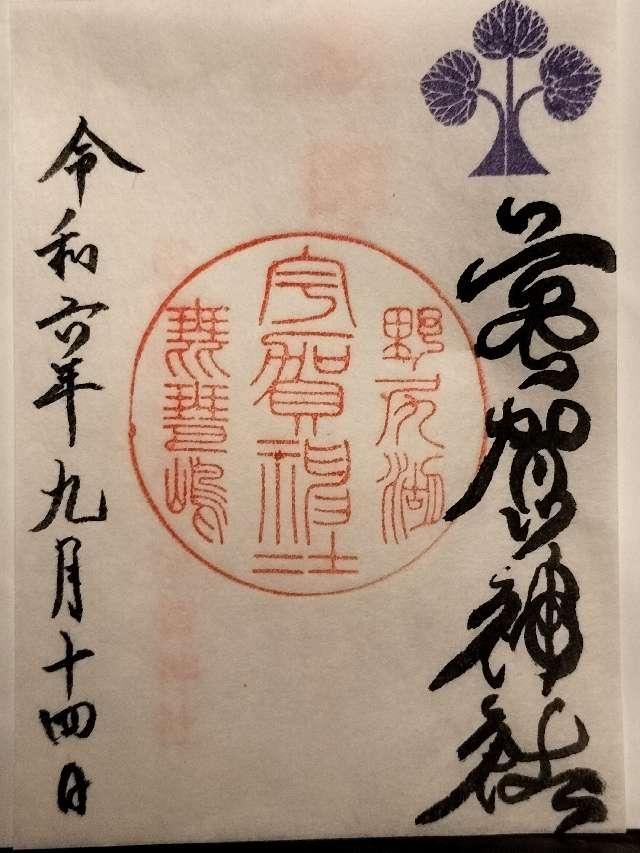 宇賀神社
野尻湖
宇賀神社
琵琶嶋
令和六年九月十四日